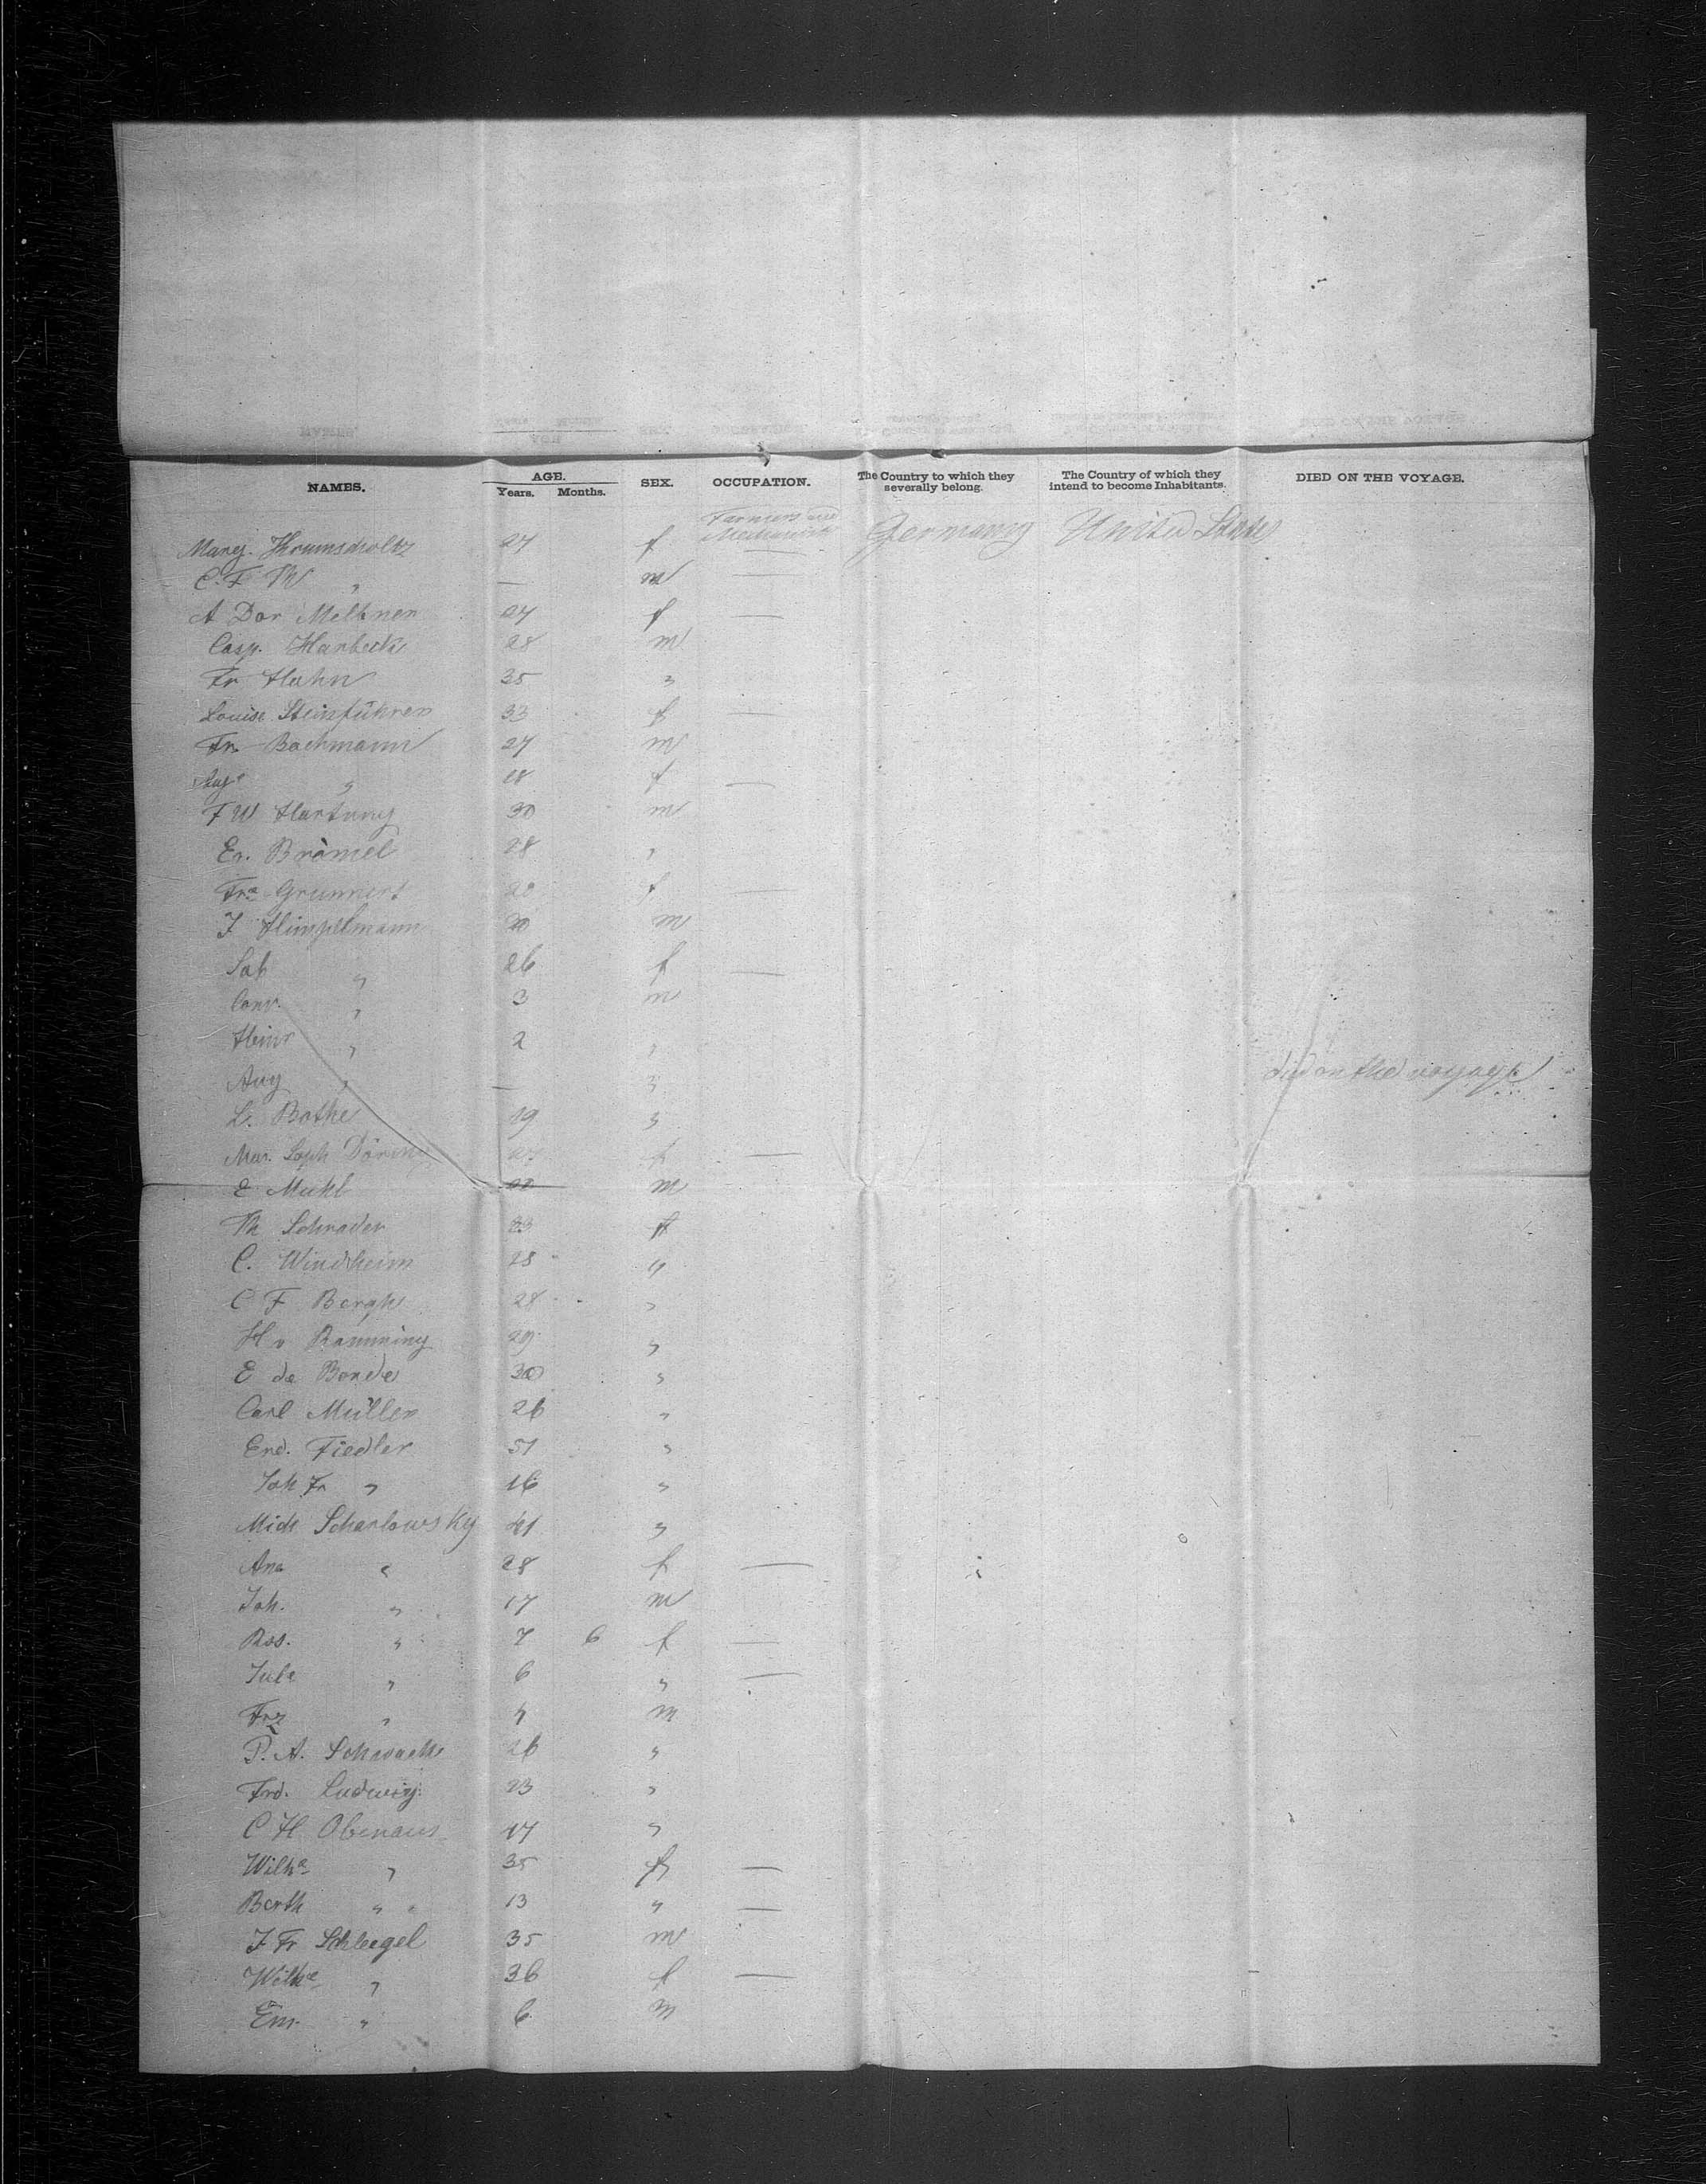 NAMES. AGE. Years. Months. SEX. OCCUPATION. The Country to which they severally belong. The Country of which they intend to become Inhabitants. DIED ON THE VOYAGE.
Farmers and Mechanics Germany United States
Mary. Krumscholtz 27 f —
C. F. W " — m —
A Dor Meltner 27 f —
Casp. Harbeck 28 m
Fr Hahn 35 "
Louise Steinführer 33 f —
Fr. Bachmann 27 m
Aug " 18 f —
F W Hartung 30 m
Er. Brömel 28 "
Fra Grunnert f —
J Himpelmann 30 m
Sah " 26 f —
Conr. " 3 m
Heinr " 2 "
Aug " — " died on the voyage
L. Bothe 19 "
Mar. Soph f —
E Muhl m
Th Schrader 23
C. Windheim 28 "
C F Bergh 28 "
H v Ramming 29 "
E de Bonde 30 "
Carl Müller 26 "
End. Fiedler 51 "
Joh Fr " 16 "
Mich Scharlowsky 41 "
Ana " 28 f —
Joh. " 17 m
Ros. " 7 6 f —
Jula " 6 " —
Frz " 4 m
P. A. 26 "
Frd. Ludwig. 23 "
C H Obenaus 47 "
Wilhe " 35 f —
Berth " 13 " —
J Fr Schleegel 35 m
Wilhe " 36 f —
Em. " 6 m